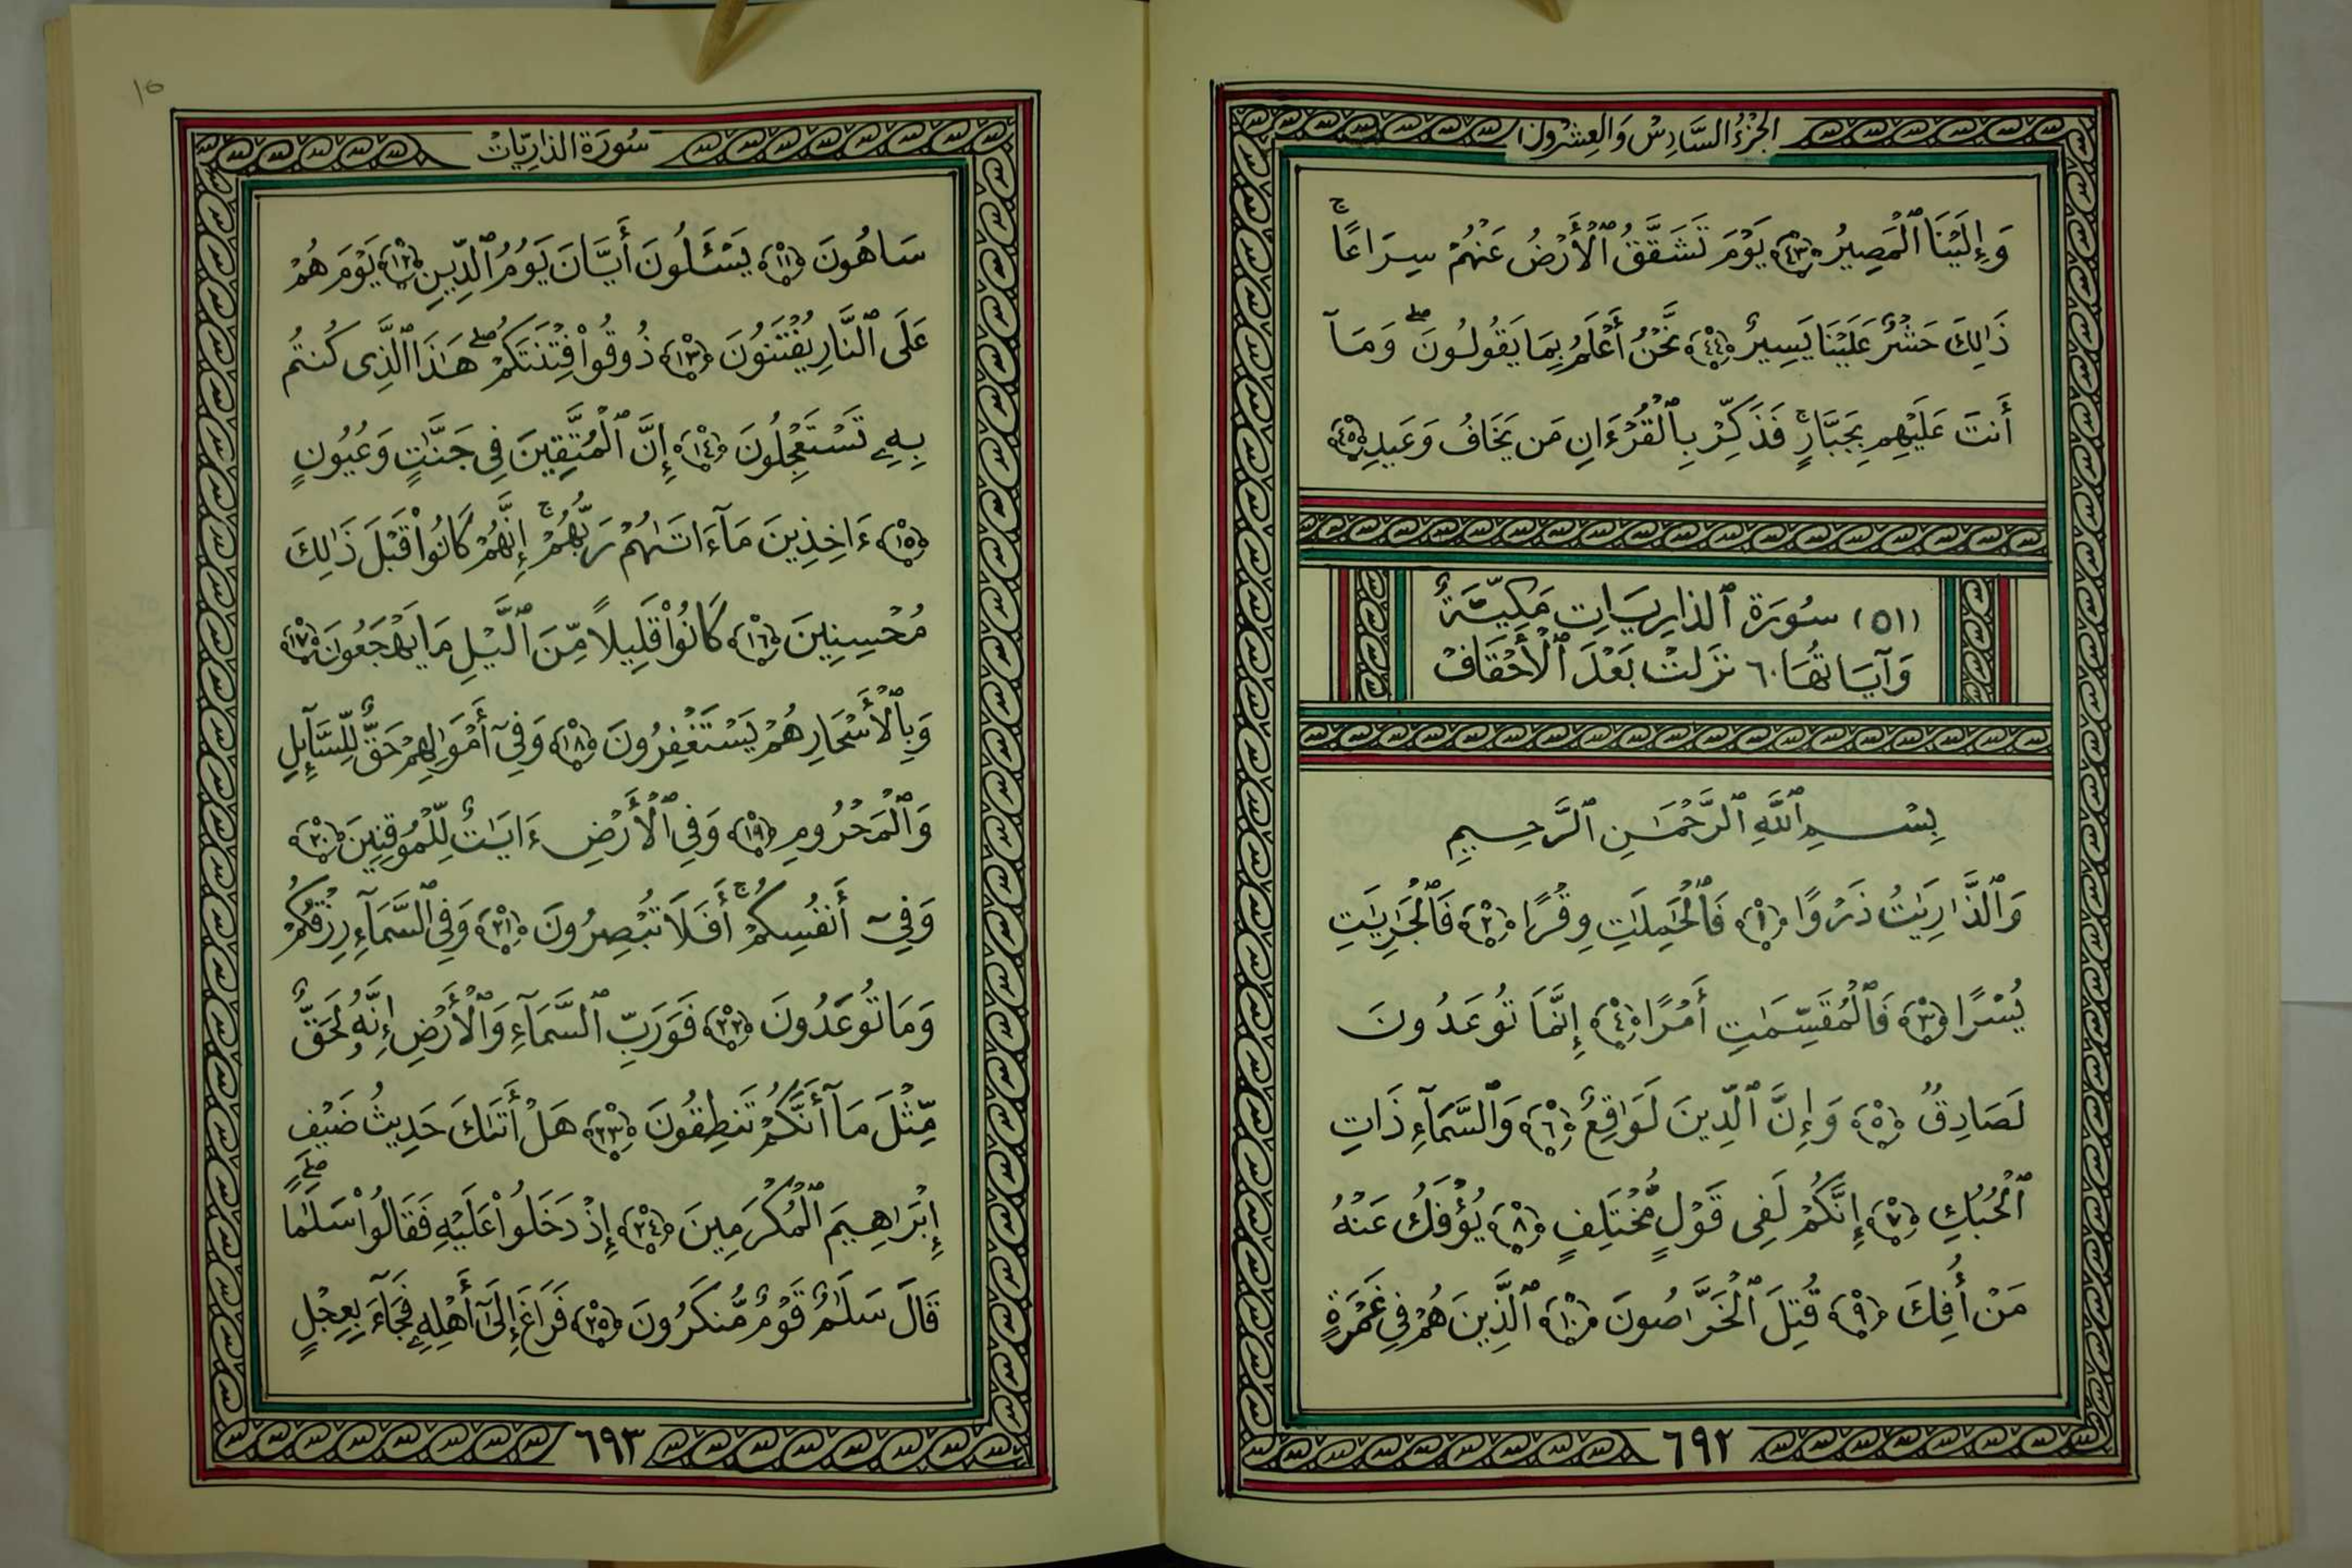 الجزء السادس والعشرون
وَإِلَيْنَا ٱلْمَصِيرُ ﴿٤٣﴾ يَوْمَ تَشَقَّقُ ٱلْأَرْضُ عَنْهُمْ سِرَاعًا ۚ
ذَٰلِكَ حَشْرٌ عَلَيْنَا يَسِيرٌ ﴿٤٤﴾ نَّحْنُ أَعْلَمُ بِمَا يَقُولُونَ ۖ وَمَآ
أَنتَ عَلَيْهِم بِجَبَّارٍ ۚ فَذَكِّرْ بِٱلْقُرْءَانِ مَن يَخَافُ وَعِيدِ ﴿٤٥﴾
(٥١) سُورَة ٱلذارِيَاتِ مَكِيَّةٌ
وَآيَاتُهَا ٦٠ نَزَلَتْ بَعْدَ ٱلْأَحْقَافْ
بِسْمِ ٱللَّهِ ٱلرَّحْمَٰنِ ٱلرَّحِيمِ
وَٱلذَّارِيَٰتِ ذَرْوًا ﴿١﴾ فَٱلْحَٰمِلَٰتِ وِقْرًا ﴿٢﴾ فَٱلْجَٰرِيَٰتِ
يُسْرًا ﴿٣﴾ فَٱلْمُقَسِّمَٰتِ أَمْرًا ﴿٤﴾ إِنَّمَا تُوعَدُونَ
لَصَادِقٌ ﴿٥﴾ وَإِنَّ ٱلدِّينَ لَوَٰقِعٌ ﴿٦﴾ وَٱلسَّمَآءِ ذَاتِ
ٱلْحُبُكِ ﴿٧﴾ إِنَّكُمْ لَفِى قَوْلٍ مُّخْتَلِفٍ ﴿٨﴾ يُؤْفَكُ عَنْهُ
مَنْ أُفِكَ ﴿٩﴾ قُتِلَ ٱلْخَرَّاصُونَ ﴿١٠﴾ ٱلَّذِينَ هُمْ فِى غَمْرَةٍ
٦٩٢
١٥
سُورَة الذاريَات
سَاهُونَ ﴿١١﴾ يَسْـَٔلُونَ أَيَّانَ يَوْمُ ٱلدِّينِ ﴿١٢﴾ يَوْمَ هُمْ
عَلَى ٱلنَّارِ يُفْتَنُونَ ﴿١٣﴾ ذُوقُوا۟ فِتْنَتَكُمْ ۖ هَٰذَا ٱلَّذِى كُنتُم
بِهِۦ تَسْتَعْجِلُونَ ﴿١٤﴾ إِنَّ ٱلْمُتَّقِينَ فِى جَنَّٰتٍ وَعُيُونٍ
﴿١٥﴾ ءَاخِذِينَ مَآ ءَاتَىٰهُمْ رَبُّهُمْ ۚ إِنَّهُمْ كَانُوا۟ قَبْلَ ذَٰلِكَ
مُحْسِنِينَ ﴿١٦﴾ كَانُوا۟ قَلِيلًا مِّنَ ٱلَّيْلِ مَا يَهْجَعُونَ ﴿١٧﴾
وَبِٱلْأَسْحَارِ هُمْ يَسْتَغْفِرُونَ ﴿١٨﴾ وَفِىٓ أَمْوَٰلِهِمْ حَقٌّ لِّلسَّآئِلِ
وَٱلْمَحْرُومِ ﴿١٩﴾ وَفِى ٱلْأَرْضِ ءَايَٰتٌ لِّلْمُوقِنِينَ ﴿٢٠﴾
وَفِىٓ أَنفُسِكُمْ ۚ أَفَلَا تُبْصِرُونَ ﴿٢١﴾ وَفِى ٱلسَّمَآءِ رِزْقُكُمْ
وَمَا تُوعَدُونَ ﴿٢٢﴾ فَوَرَبِّ ٱلسَّمَآءِ وَٱلْأَرْضِ إِنَّهُۥ لَحَقٌّ
مِّثْلَ مَآ أَنَّكُمْ تَنطِقُونَ ﴿٢٣﴾ هَلْ أَتَىٰكَ حَدِيثُ ضَيْفِ
إِبْرَاهِيمَ ٱلْمُكْرَمِينَ ﴿٢٤﴾ إِذْ دَخَلُوا۟ عَلَيْهِ فَقَالُوا۟ سَلَٰمًا ۖ
قَالَ سَلَٰمٌ قَوْمٌ مُّنكَرُونَ ﴿٢٥﴾ فَرَاغَ إِلَىٰٓ أَهْلِهِۦ فَجَآءَ بِعِجْلٍ
٦٩٣